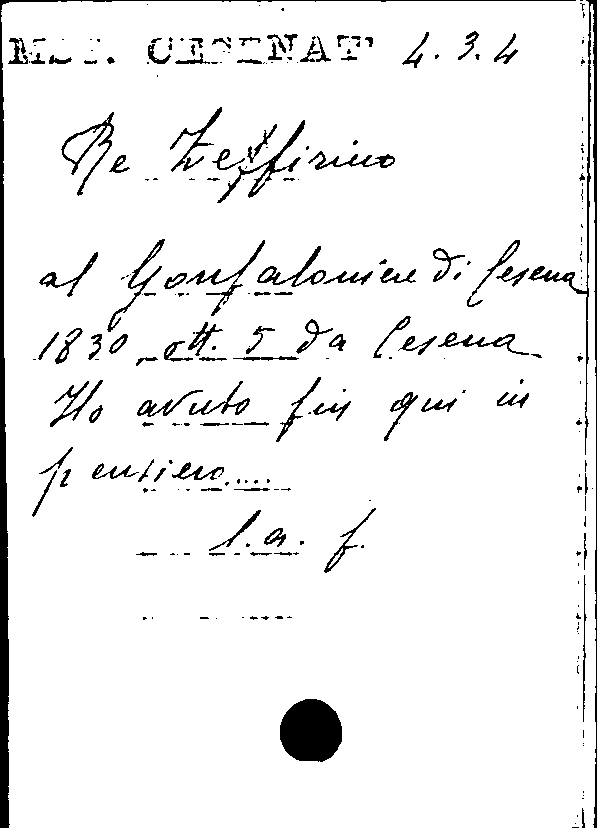 MSS. CESENAT 4.3.4
Re Zeffirino
al Gonfaloniere di Cesena
1830 ott. 5 da Cesena
Ho avuto fin qui in
pensiero....
l.a. f.